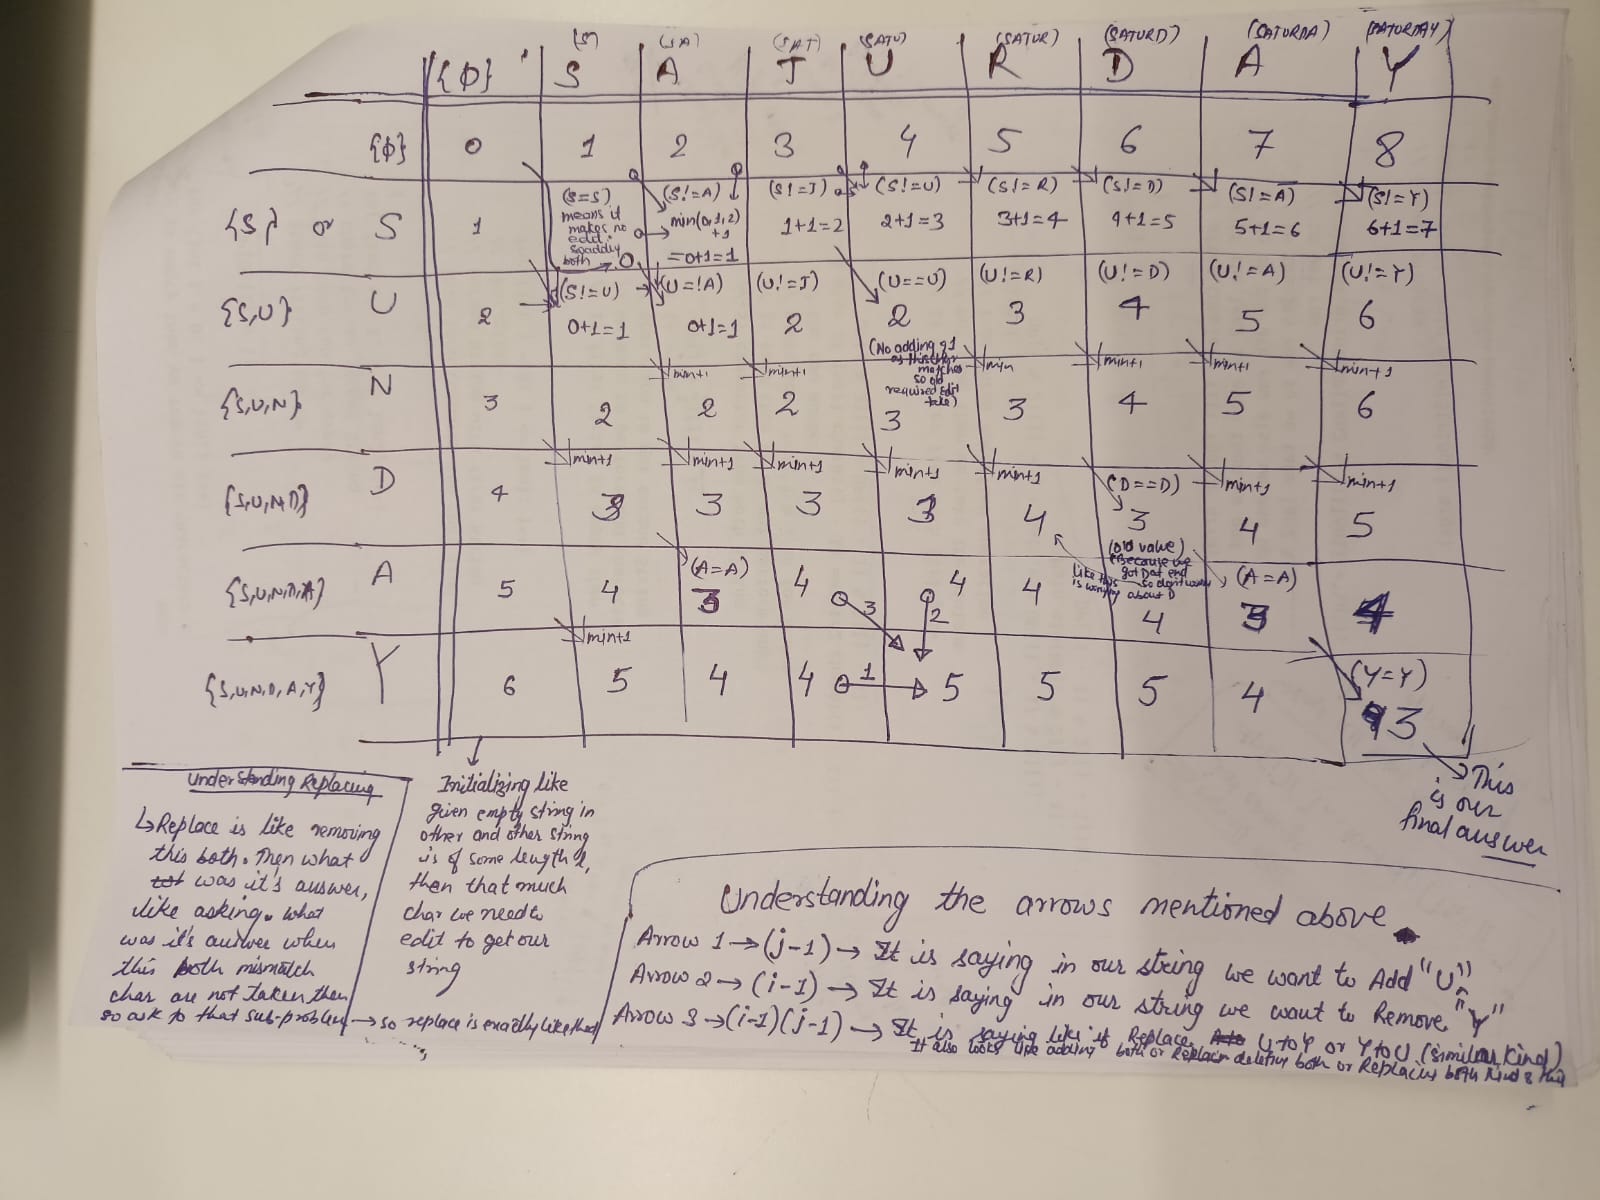 (S) (SA) (SAT) (SATU) (SATUR) (SATURD) (SATURDA) (SATURDAY)
{Φ} S A T U R D A Y
{Φ} 0 1 2 3 4 5 6 7 8
(S=S) (S!=A) (S!=T) (S!=U) (S!=R) (S!=D) (S!=A) (S!=Y)
{S} or S 1 means it makes no edit. both → 0 min(0,1,2) +1 =0+1=1 1+1=2 2+1=3 3+1=4 4+1=5 5+1=6 6+1=7
(S!=U) (U=!A) (U!=T) (U==U) (U!=R) (U!=D) (U!=A) (U!=Y)
{S,U} U 2 0+1=1 0+1=1 2 2 3 4 5 6
(No adding of 1 as this char matches so old required edit take)
min+1 min+1 min min+1 min+1 min+1
{S,U,N} N 3 2 2 2 3 3 4 5 6
min+1 min+1 min+1 min+1 min+1 (D==D) min+1 min+1
{S,U,N,D} D 4 3 3 3 3 4 3 4 5
(old value)
(Because we got D at end so don't worry about D
like this is worrying
(A=A) (A=A)
{S,U,N,D,A} A 5 4 3 4 4 4 4 3 4
3 2
min+1 (Y=Y)
{S,U,N,D,A,Y} Y 6 5 4 4 1 5 5 5 4 3
This
is our
final answer
Understanding Replacing
↳Replace is like removing
this both. Then what
was it's answer,
like asking. what
was it's answer when
this both mismatch
char are not taken then
so ask to that sub-problem → so replace is exactly like that
Initializing like
given empty string in
other and other string
is of some length l,
then that much
char we need to
edit to get our
string
Understanding the arrows mentioned above
Arrow 1→(j-1)→ It is saying in our string we want to Add "U"
Arrow 2→(i-1)→ It is saying in our string we want to Remove "Y"
Arrow 3→(i-1)(j-1)→ It is saying like if Replace U to Y or Y to U (similar kind)
It also looks like adding both or deleting both or Replacing both kind of this